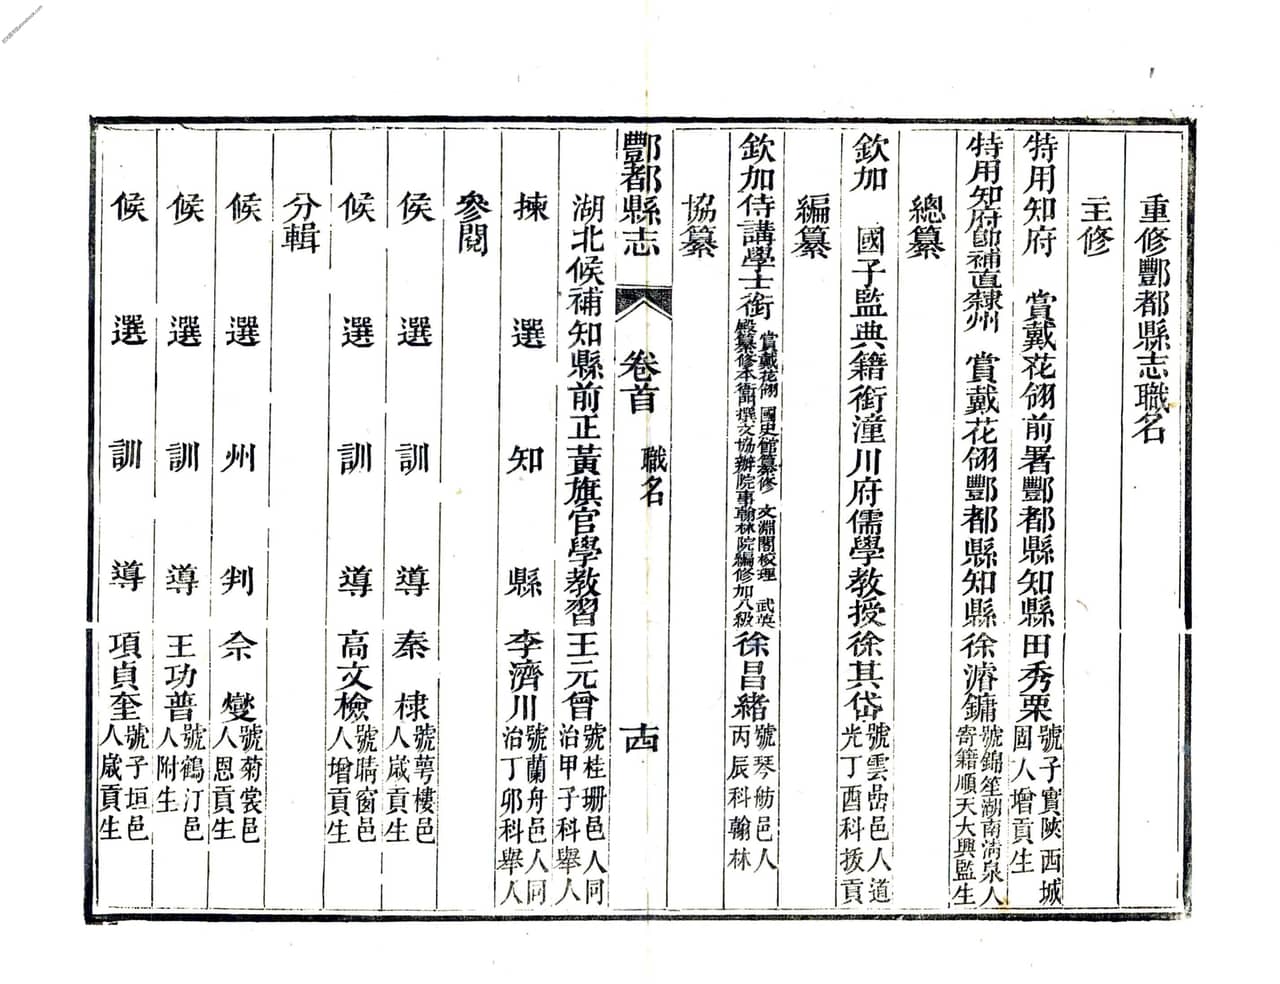 重修酆都縣志職名
主修
特用知府 賞戴花翎前署酆都縣知縣田秀栗號子實陝西城固人增貢生
特用知府卽補直隸州 賞戴花翎酆都縣知縣徐濬鏞號錦笙湖南淸泉人寄籍順天大興監生
總纂
欽加 國子監典籍銜潼川府儒學教授徐其岱號雲嵒邑人道光丁酉科拔貢
編纂
欽加侍講學士銜賞戴花翎 國史館纂修 文淵閣校理 武英殿纂修本衙門撰文協辦院事翰林院編修加八級徐昌緒號琴舫邑人丙辰科翰林
協纂
酆都縣志 卷首 職名 十四
湖北候補知縣前正黃旗官學教習王元曾號桂珊邑人同治甲子科舉人
揀選知縣李濟川號蘭舟邑人同治丁卯科舉人
參閱
候選訓導秦棣號萼樓邑人歲貢生
候選訓導高文檢號晴窗邑人增貢生
分輯
候選州判佘燮號菊裳邑人恩貢生
候選訓導王功普號鶴汀邑人附生
候選訓導項貞奎號子垣邑人歲貢生